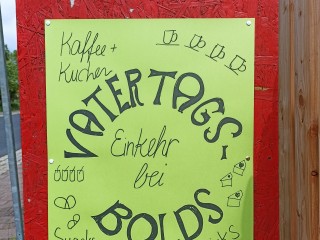 Kaffee +
Kuchen
VATERTAGS-
Einkehr
bei
BOLDS